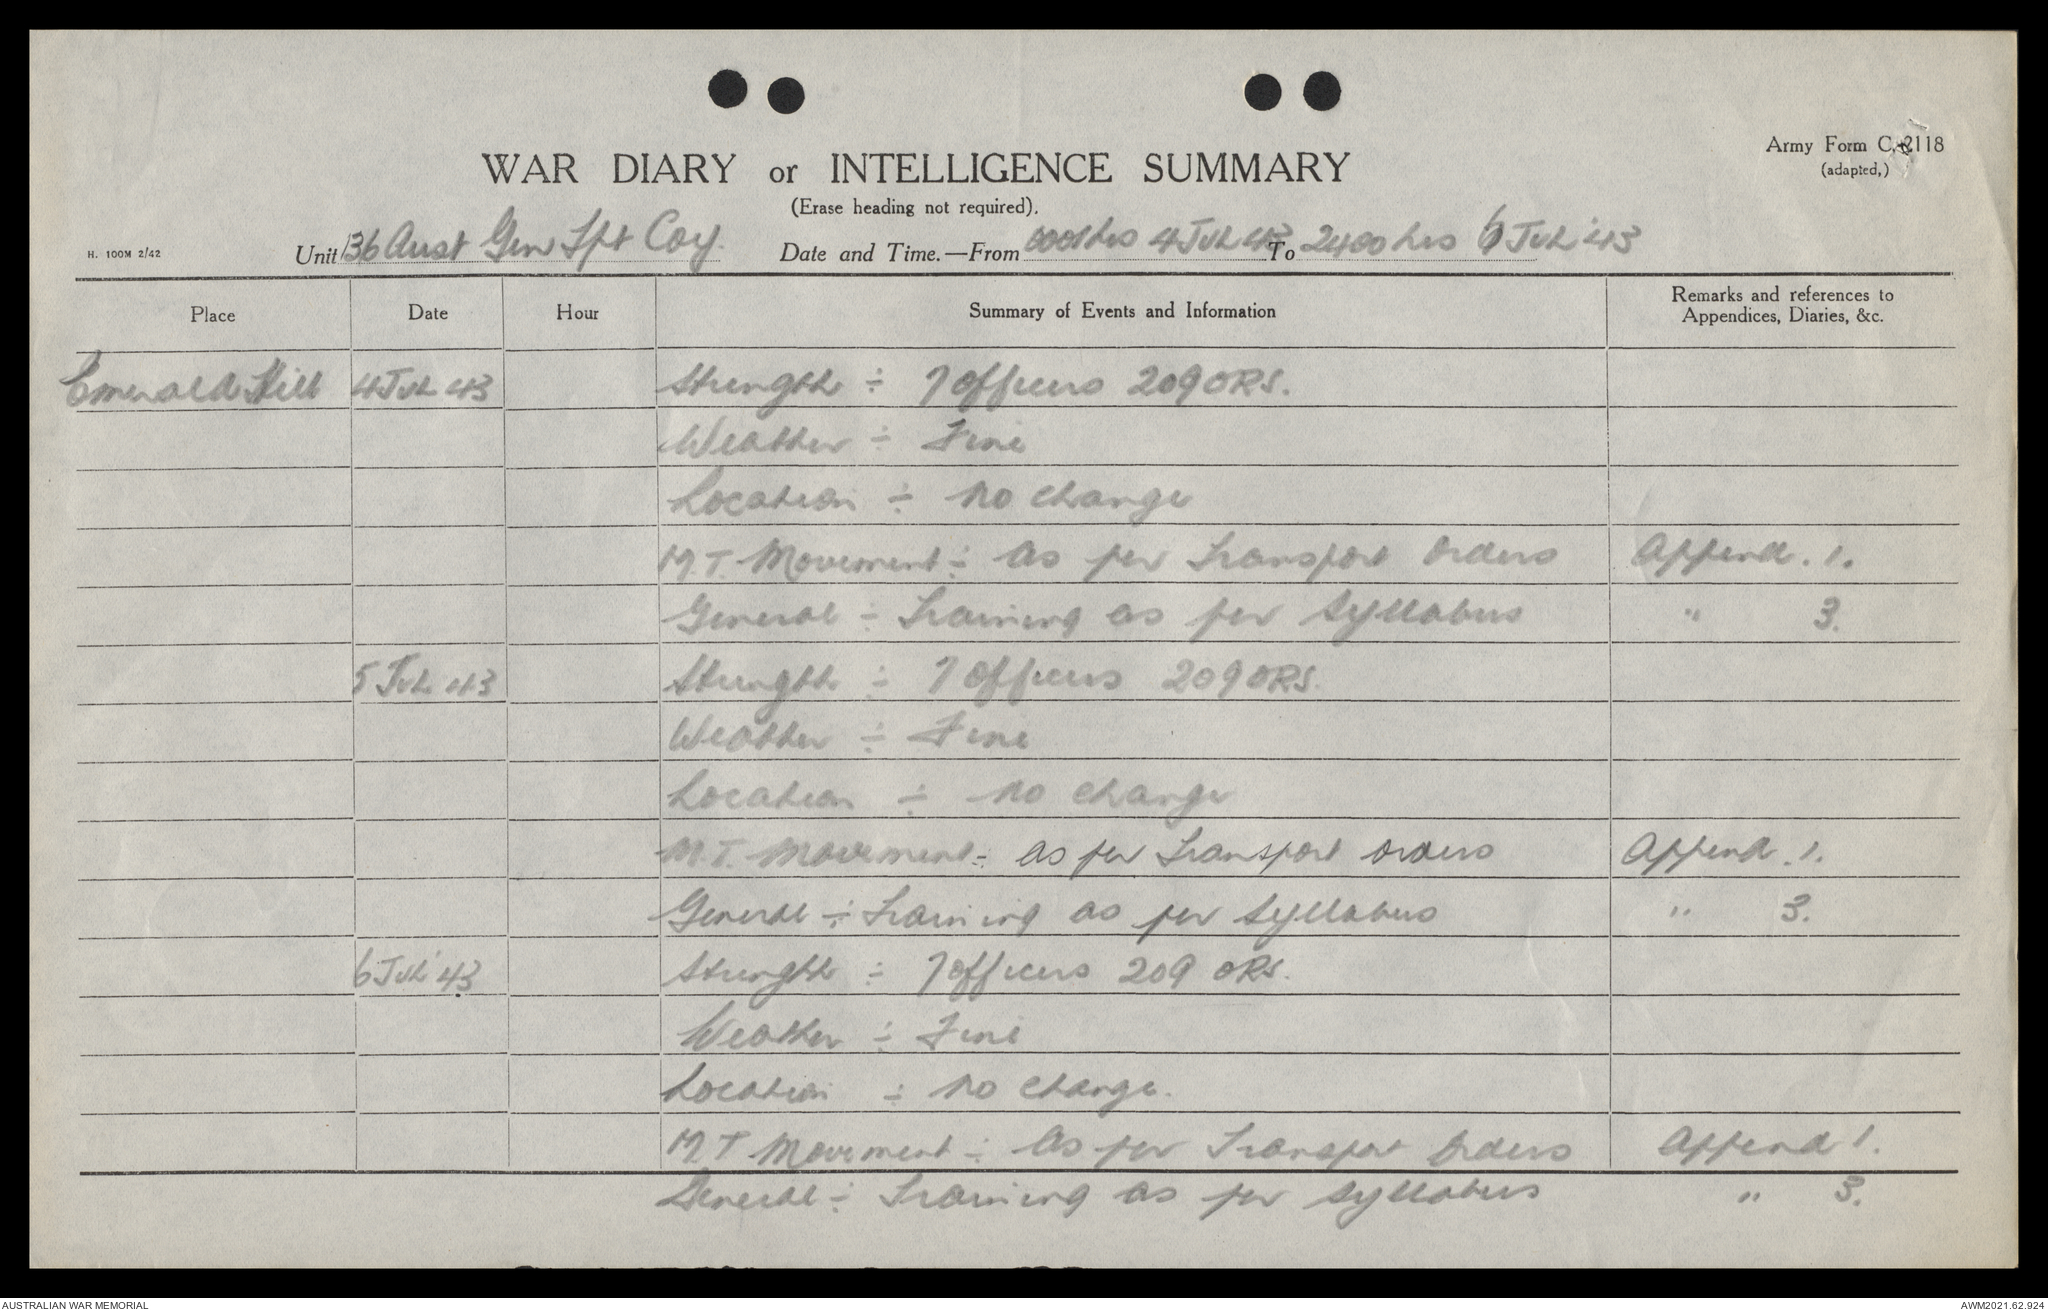 Army Form C.2118
WAR DIARY or INTELLIGENCE SUMMARY
(adapted,)
(Erase heading not required).
H. 100M 2/42
Unit 136 Aust Gen Tpt Coy. Date and Time.—From 0001hrs 4 Jul 43 To 2400 hrs 6 Jul '43
Place Date Hour Summary of Events and Information Remarks and references to Appendices, Diaries, &c.
Emerald Hill 4 Jul 43 Strength ÷ 7 Officers 209 ORS.
Weather ÷ Fine
Location ÷ No change
M.T. Movement ÷ As per Transport Orders Append. 1.
General ÷ Training as per Syllabus " 3.
5 Jul 43 Strength ÷ 7 Officers 209 ORS.
Weather ÷ Fine
Location ÷ No change
M.T. Movement ÷ As per Transport orders Append. 1.
General ÷ Training as per Syllabus " 3.
6 Jul '43 Strength ÷ 7 Officers 209 ORS.
Weather ÷ Fine
Location ÷ No change.
M.T Movement ÷ As per Transport Orders Append 1.
General ÷ Training as per Syllabus " 3.
AUSTRALIAN WAR MEMORIAL AWM2021.62.924